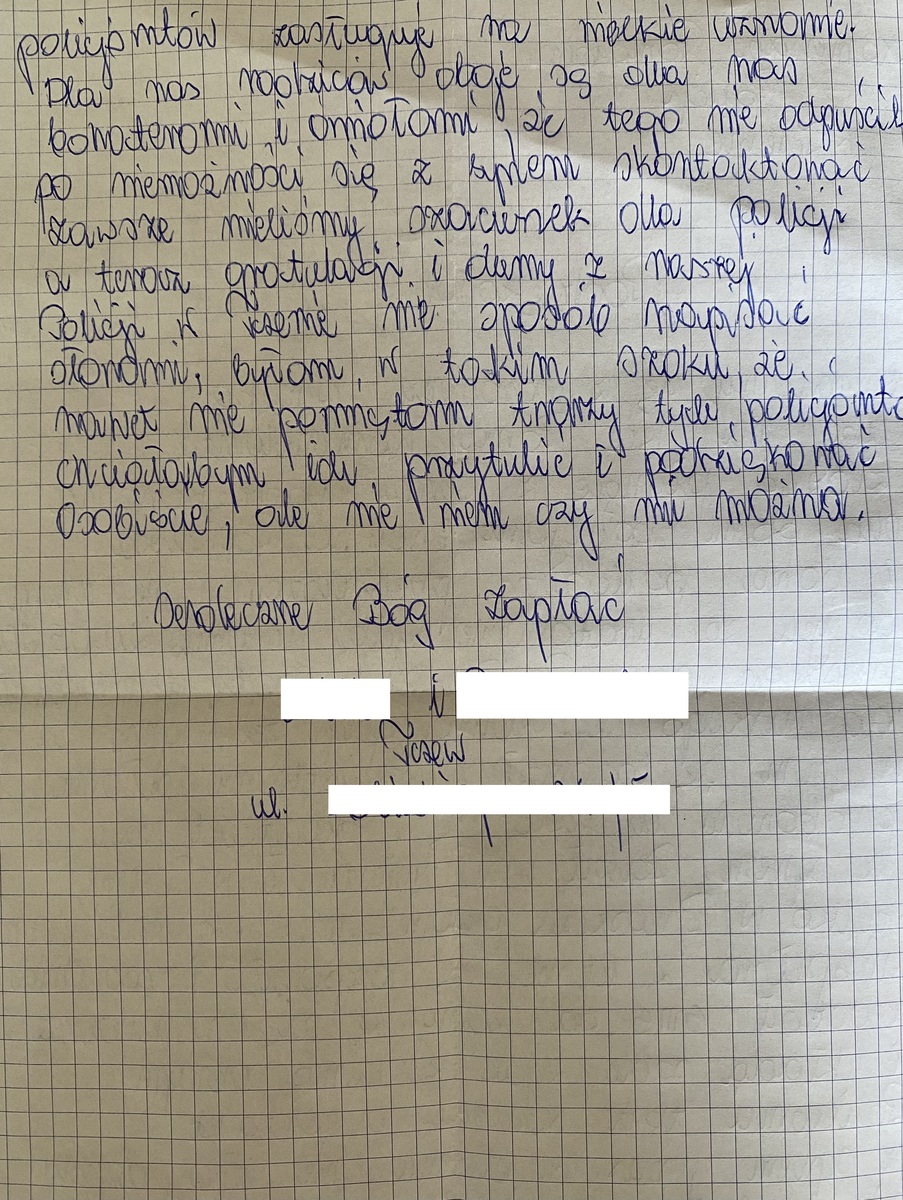 policjantów zasługuje na wielkie uznanie.
Dla nas rodziców oboje są dla nas
bohaterami i aniołami, że tego nie odpuścił
po niemożności się z synem skontaktować
zawsze mieliśmy szacunek dla policji
a teraz gratulacji i dumy z naszej
Policji w Tczewie nie sposób wyrazić
słowami, byłam w takim szoku, że
nawet nie pamiętam twarzy tych policjantó
chciałabym ich przytulić i podziękować
osobiście, ale nie wiem czy mi można.
Serdeczne Bóg zapłać
i
Tczew
ul.